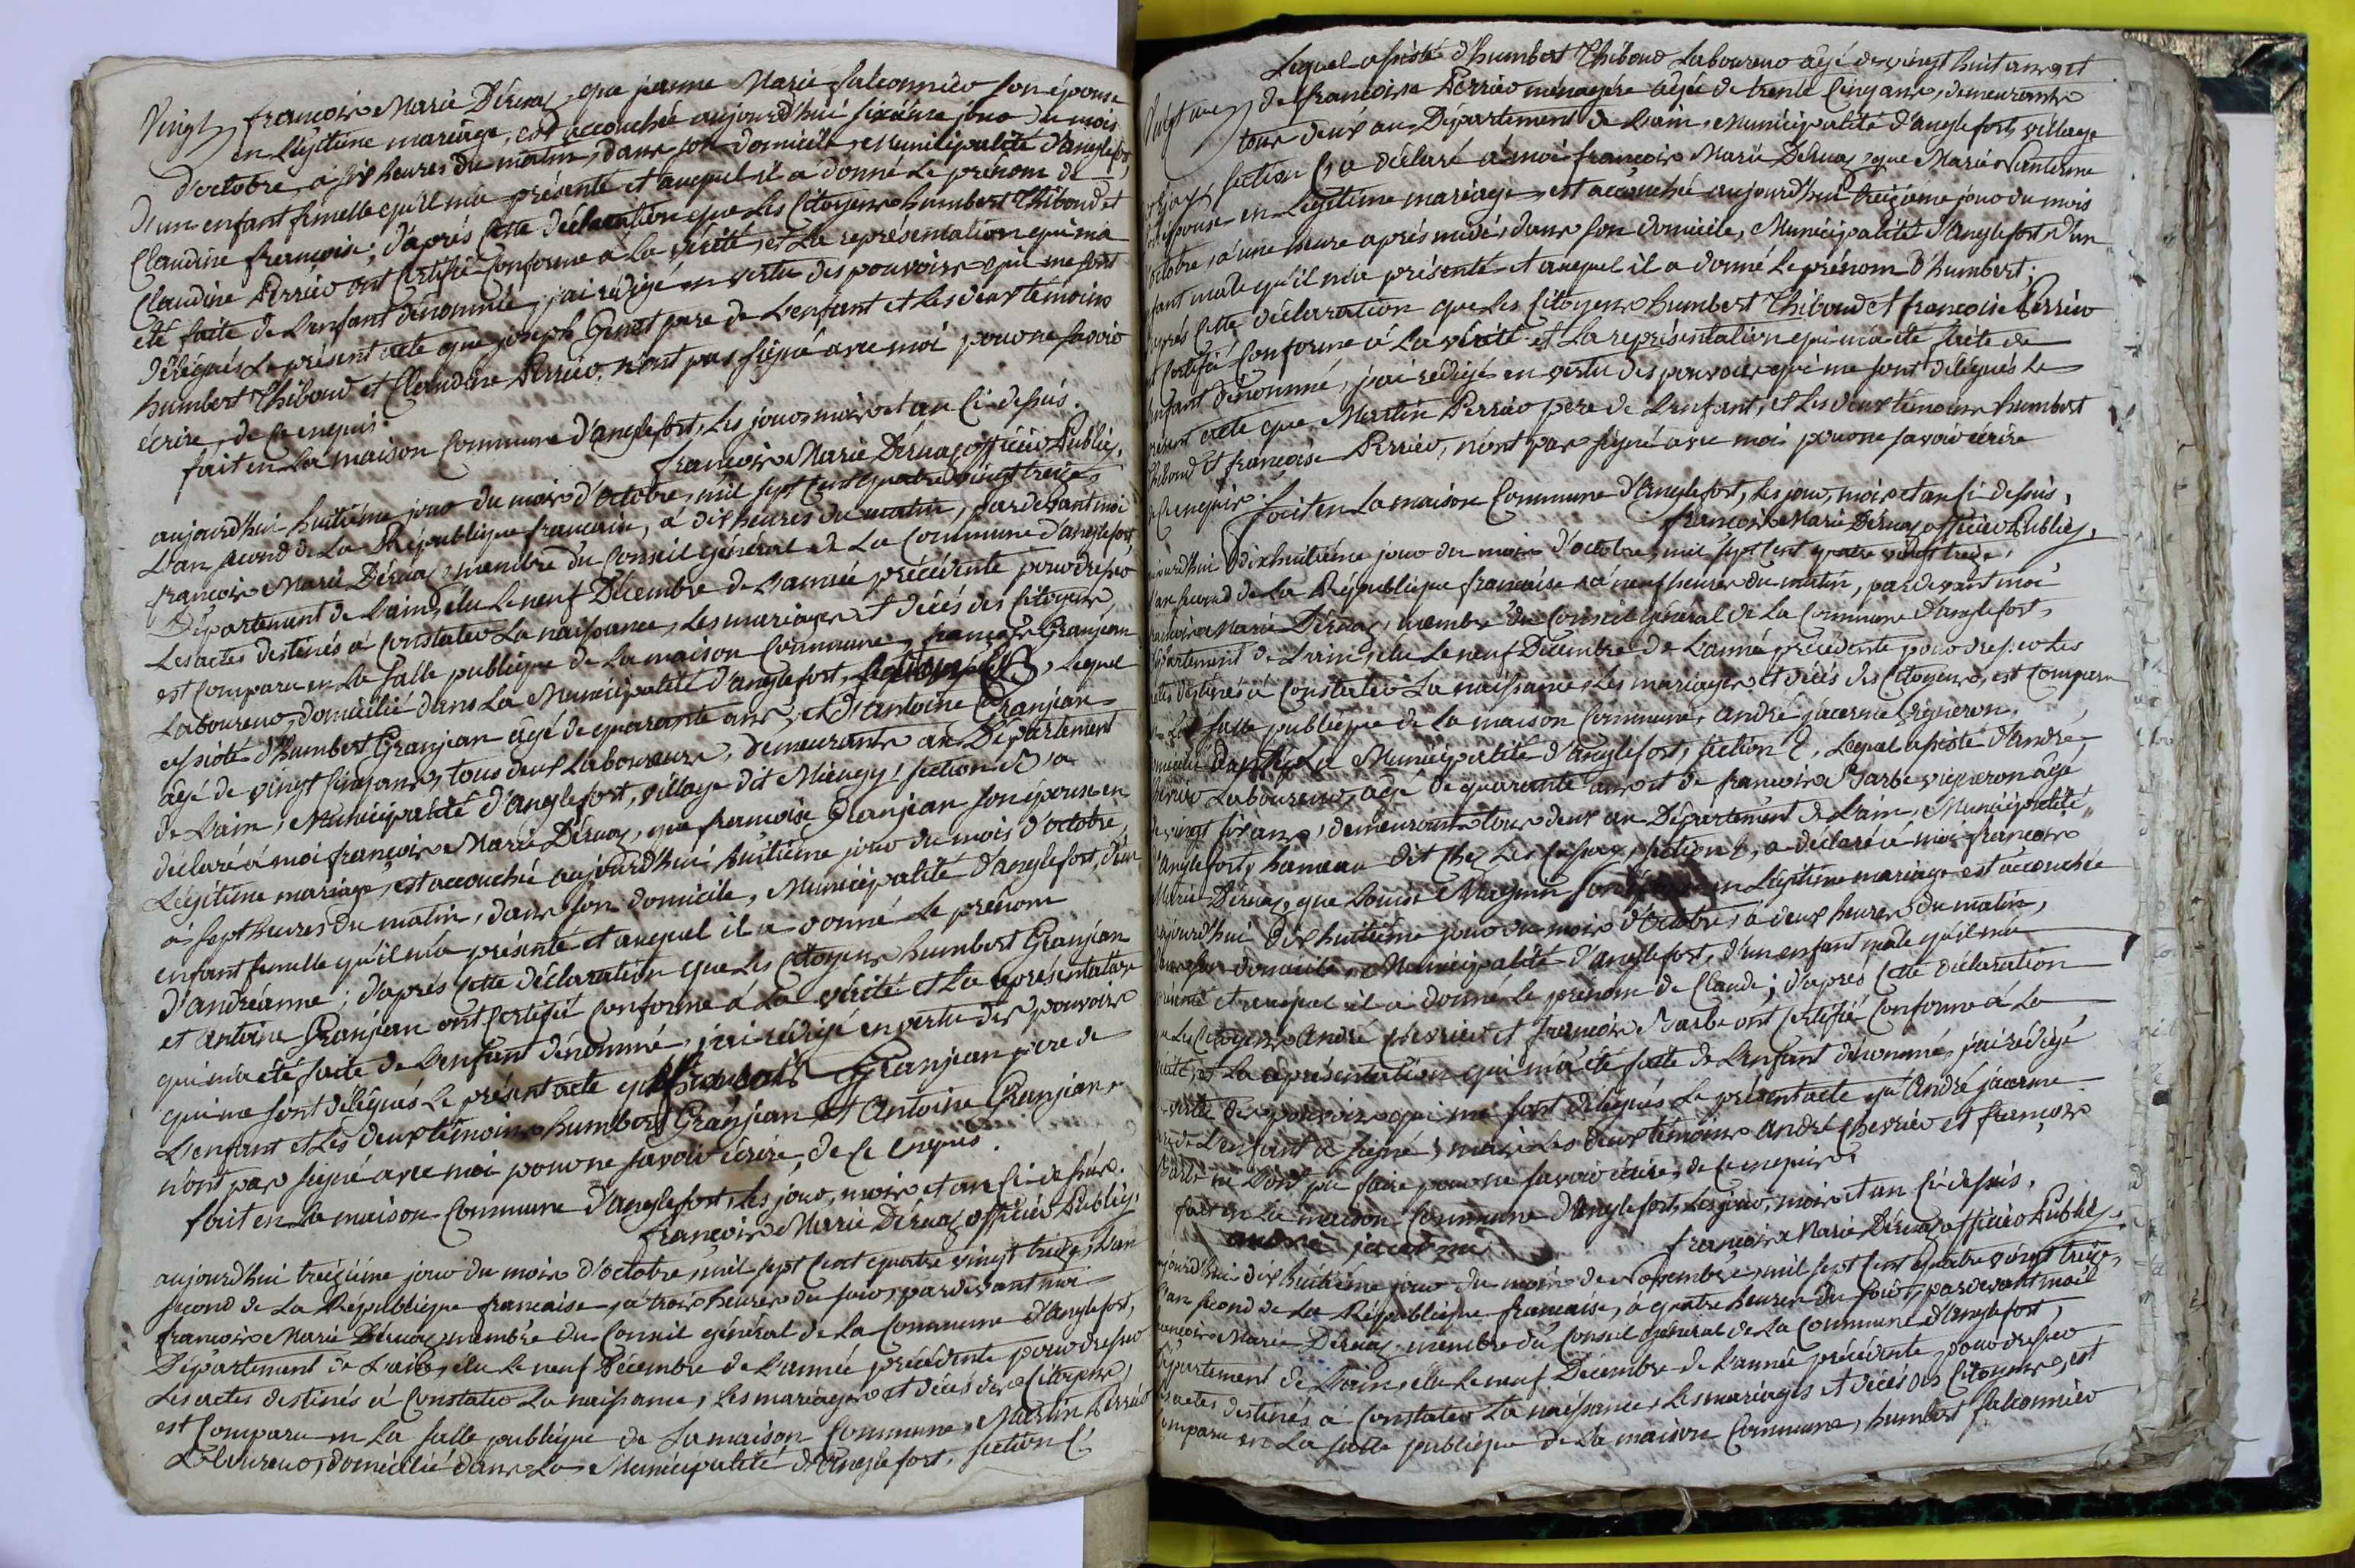 Vingt, françois Marie Déruaz, que jeanne Marie falconnier son épouse
en Légitime mariage, est accouchée aujourd'hui sixième jour du mois
d'octobre, à six heures du matin, dans son domicile, Municipalité d'anglefort,
d'un enfant femelle qu'il m'a présenté et auquel il a donné Le prénom de
Claudine françoise; d'après Cette déclaration que Les Citoyens humbert Thiboud et
Claudine Perrier ont Certifié Conforme à La vérité, et La représentation qui m'a
été faite de L'enfant dénommé, j'ai rédigé en vertu des pouvoirs qui me sont
délégués Le présent acte que joseph Genet pere de L'enfant et Les deux témoins
humbert Thiboud et Claudine Perrier, n'ont pas signé avec moi pour ne savoir
écrire, de Ce enquis.
fait en La maison Commune d'anglefort, Les jour, mois et an Ci-dessus.
françois Marie Déruaz officier Public,
aujourd'hui huitième jour du mois d'octobre, mil sept Cent quatre vingt treize,
L'an second de La République française, à dix heures du matin, pardevant moi
françois Marie Déruaz, membre du Conseil général de La Commune d'anglefort,
Département de L'ain, élu Le neuf Décembre de L'année précédente pour dresser
Les actes destinés à Constater La naissance, Les mariages et décès des Citoyens,
est Comparu en La salle publique de La maison Commune, françois Granjean
Laboureur, domicilié dans La Municipalité d'anglefort, Lequel
assisté d'humbert Granjean âgé de quarante ans, et d'antoine Granjean
âgé de vingt Cinq ans, tous deux Laboureurs, demeurants au Département
de L'ain, Municipalité d'anglefort, village dit Mieugy, section a
déclaré à moi françois Marie Déruaz, que françoise Granjean son épouse en
Légitime mariage, est accouchée aujourd'hui huitième jour du mois d'octobre,
à sept heures du matin, dans son domicile, Municipalité d'anglefort, d'un
enfant femelle qu'il m'a présenté et auquel il a donné Le prénom
d'andréanne; d'après Cette déclaration que Les Citoyens humbert Granjean
et antoine Granjean ont Certifié Conforme à La vérité et La représentation
qui m'a été faite de L'enfant dénommé, j'ai rédigé en vertu des pouvoirs
qui me sont délégués Le présent acte Granjean pere de
L'enfant et Les deux témoins humbert Granjean et Antoine Granjean
n'ont pas signé avec moi pour ne savoir écrire, de Ce enquis.
fait en La maison Commune d'anglefort, Les jour, mois et an Ci-dessus.
françois Marie Déruaz officier Public,
aujourd'hui treizième jour du mois d'octobre, mil sept Cent quatre vingt treize, L'an
second de La République française, à trois heures du soir, pardevant moi
françois Marie Déruaz, membre du Conseil général de La Commune d'anglefort,
Département de L'ain, élu Le neuf Décembre de L'année précédente pour dresser
Les actes destinés à Constater La naissance, Les mariages et décès des Citoyens,
est Comparu en La salle publique de La maison Commune, Martin Perrier
Laboureur, domicilié dans La Municipalité d'Anglefort, section C,
Lequel assisté d'humbert Thiboud Laboureur âgé de vingt huit ans, et
de françoise Perrier ménagère âgée de trente Cinq ans, demeurants
tous deux au Département de L'ain, Municipalité d'anglefort, village
section C, a déclaré à moi françois Marie Déruaz, que Marie
épouse en Légitime mariage, est accouchée aujourd'hui treizième jour du mois
octobre, à une heure après midi, dans son domicile, Municipalité d'Anglefort, d'un
fant male qu'il m'a présenté et auquel il a donné Le prénom d'humbert;
après Cette déclaration que Les Citoyens humbert Thiboud et françoise Perrier
nt Certifié Conforme à La vérité et La représentation qui m'a été faite de
enfant dénommé, j'ai rédigé en vertu des pouvoirs qui me sont délégués Le
résent acte que Martin Perrier pere de L'enfant, et Les deux témoins humbert
Thiboud et françoise Perrier, n'ont pas signé avec moi pour ne savoir écrire
de Ce enquis. fait en La maison Commune d'Anglefort, Les jour, mois et an Ci-dessus,
françois Marie Déruaz officier Public,
jourd'hui dix huitième jour du mois d'octobre, mil sept Cent quatre vingt treize,
L'an second de La République française, à neuf heures du matin, pardevant moi
françois Marie Déruaz, membre du Conseil général de La Commune d'anglefort,
département de L'ain, élu Le neuf Décembre de L'année précédente pour dresser Les
actes destinés à Constater La naissance, Les mariages et décès des Citoyens, est Comparu
en La salle publique de La maison Commune, andré jacerme vigneron,
domicilié dans La Municipalité d'anglefort, section Lequel assisté d'André
Chevrier Laboureur, âgé de quarante ans et de françois Barbe vigneron âgé
de vingt six ans, demeurants tous deux au Département de L'ain, Municipalité
d'Anglefort, hameau dit Chez Les section a déclaré à moi françois
Marie Déruaz, que Louise Magnin son en Légitime mariage est accouchée
aujourd'hui dix huitième jour du mois d'Octobre, à deux heures du matin,
dans son domicile, Municipalité d'anglefort, d'un enfant male qu'il m'a
présenté et auquel il a donné Le prénom de Claude; d'après Cette déclaration
que Les Citoyens André Chevrier et françois Barbe ont Certifié Conforme à La
vérité, et La représentation qui m'a été faite de L'enfant dénommé, j'ai rédigé
en vertu des pouvoirs qui me sont délégués Le présent acte qu'André jacerme
pere de L'enfant a signé, mais Les deux témoins André Chevrier et françois
Barbe ne L'ont pu faire pour ne savoir écrire, de Ce enquis.
fait en La maison Commune d'Anglefort, Les jour, mois et an Ci-dessus.
andré jacerme françois Marie Déruaz officier Public,
aujourd'hui dix huitième jour du mois de Novembre, mil sept Cent quatre vingt treize,
L'an second de La République française, à quatre heures du soir, pardevant moi
françois Marie Déruaz, membre du Conseil général de La Commune d'anglefort,
Département de L'ain, élu Le neuf Décembre de L'année précédente, pour dresser
Les actes destinés à Constater La naissance, Les mariages et décès des Citoyens, est
Comparu en La salle publique de La maison Commune, humbert falconnier